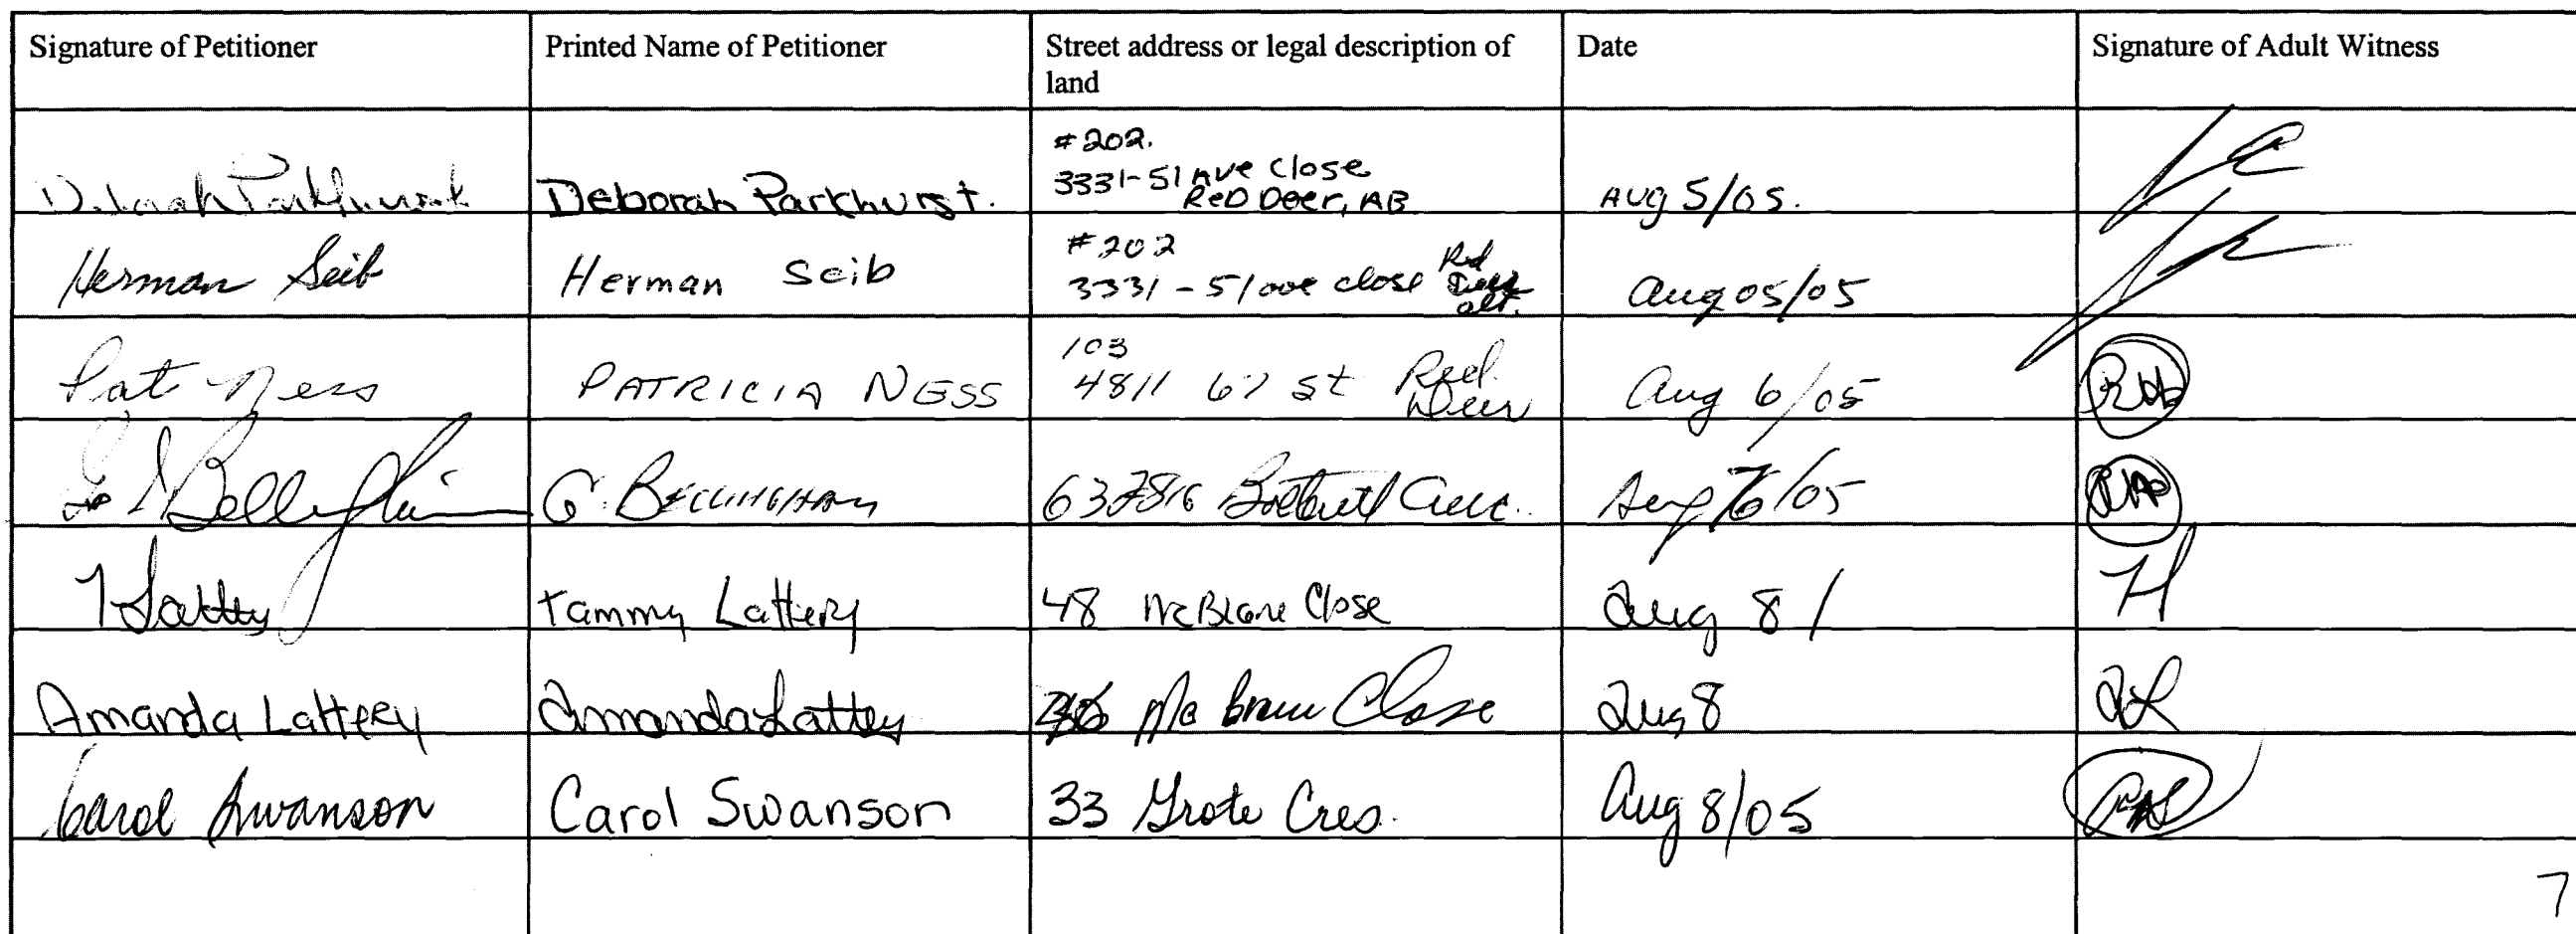 Signature of Petitioner
Printed Name of Petitioner
Street address or legal description of
land
Date
Signature of Adult Witness
Deborah Parkhurst
Deborah Parkhurst.
#202.
3331-51 Ave Close
Red Deer, AB
Aug 5/05.
Herman Seib
Herman Seib
#202
3331 - 51 ave close Red
Deer
alt.
Aug 05/05
Pat Ness
PATRICIA NESS
103
4811 67 St Red
Deer
Aug 6/05
Bellingham
G. BELLINGHAM
/05
T Lattery
Tammy Lattery
48 Close
Aug 8 /
TL
Amanda Lattery
Amanda Lattery
Close
Aug 8
AL
Carol Swanson
Carol Swanson
33 Grote Cres.
Aug 8/05
7